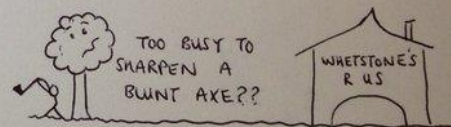 TOO BUSY TO
SHARPEN A
BLUNT AXE??
WHETSTONE'S
R US